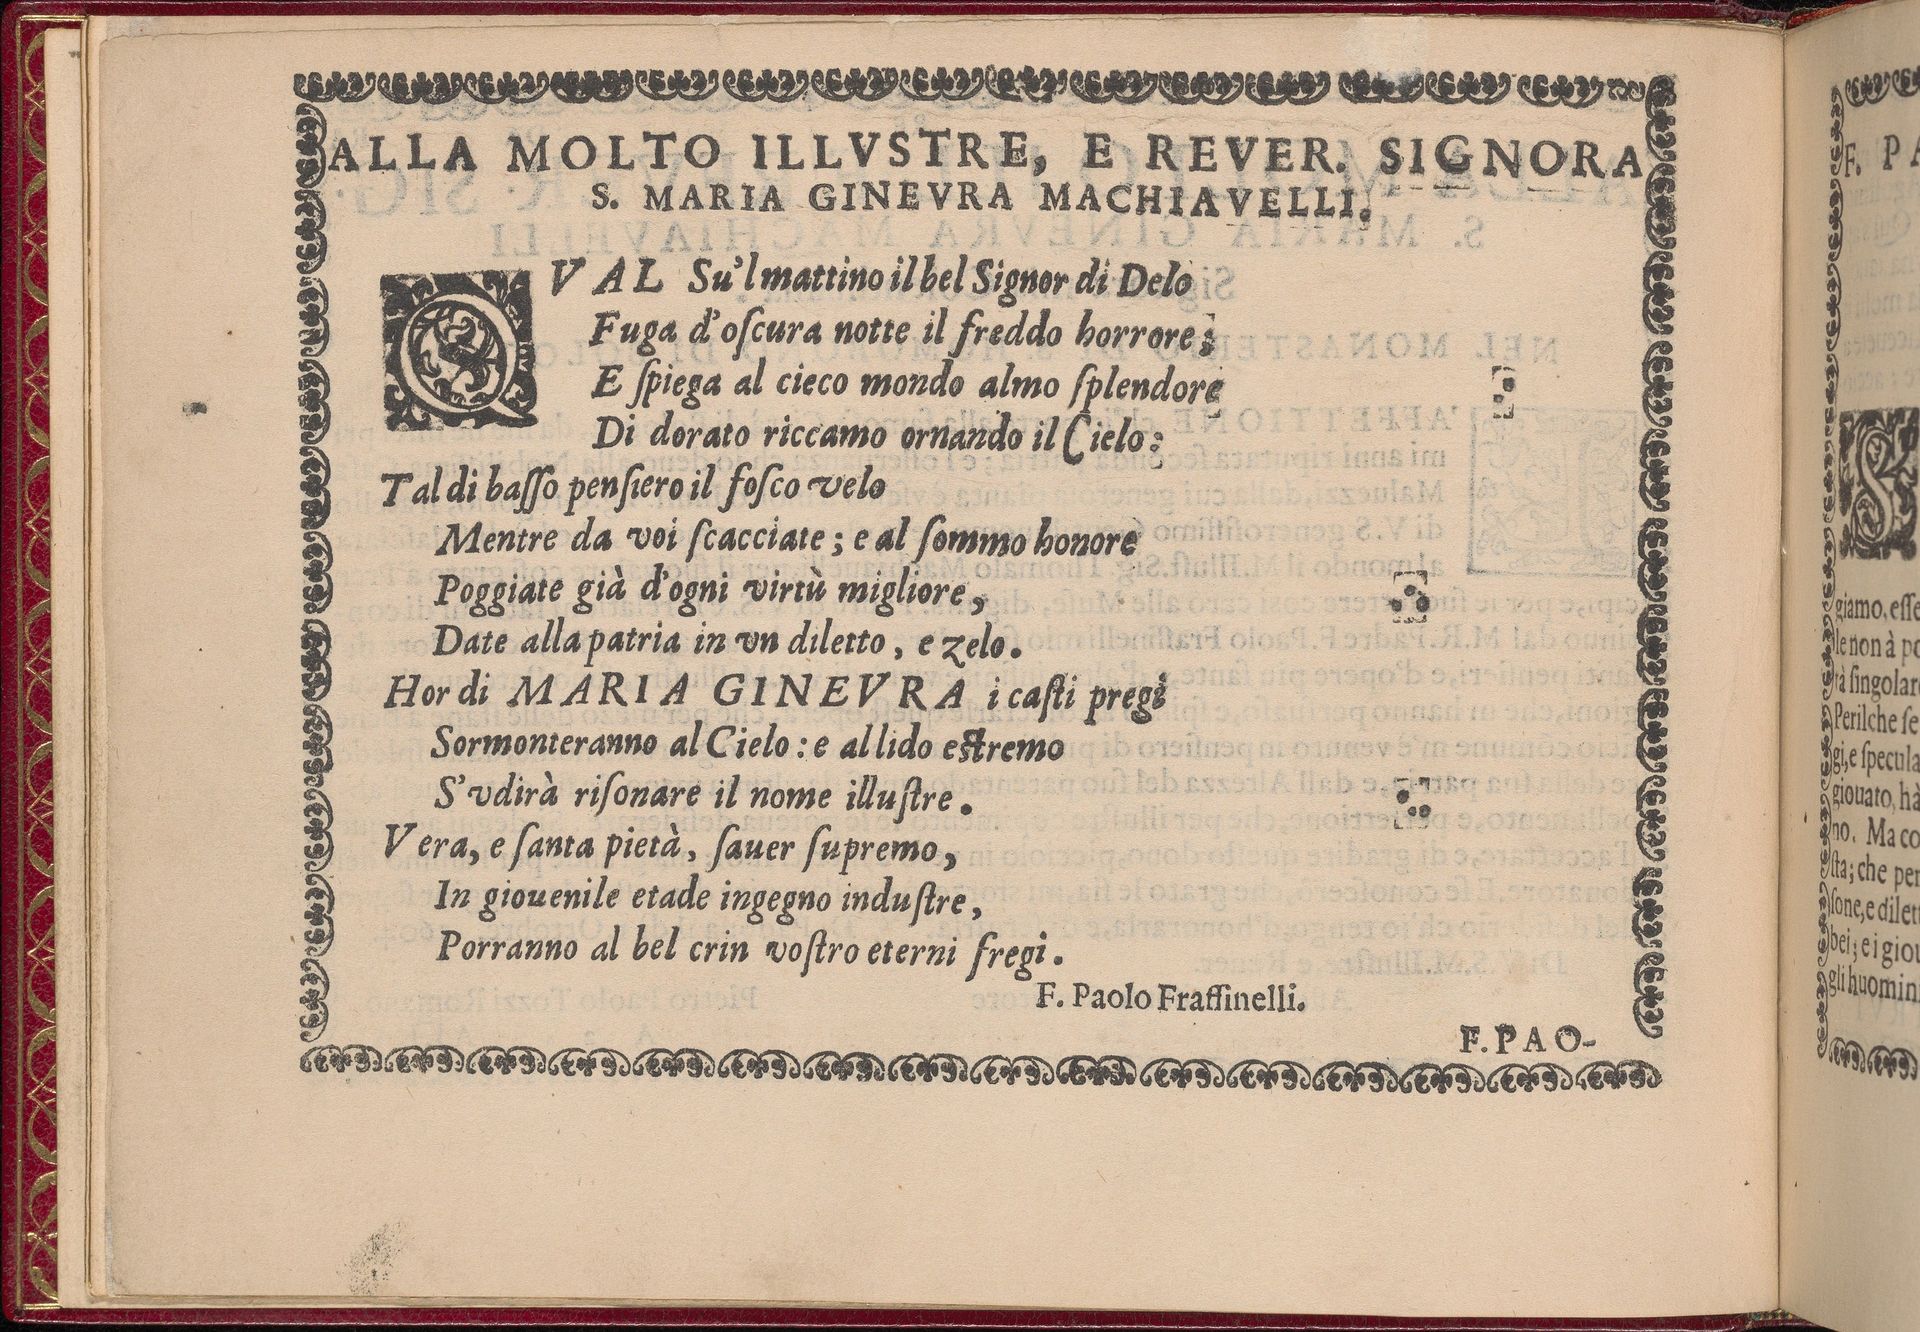 ALLA MOLTO ILLVSTRE, E REVER. SIGNORA
S. MARIA GINEVRA MACHIAVELLI.
QVAL Su'l mattino il bel Signor di Delo
Fuga d'oſcura notte il freddo horrore;
E ſpiega al cieco mondo almo ſplendore
Di dorato riccamo ornando il Cielo:
Tal di baſſo penſiero il foſco velo
Mentre da voi ſcacciate; e al ſommo honore
Poggiate già d'ogni virtù migliore,
Date alla patria in vn diletto, e zelo.
Hor di MARIA GINEVRA i caſti pregi
Sormonteranno al Cielo: e al lido eſtremo
S'vdirà riſonare il nome illuſtre.
Vera, e ſanta pietà, ſauer ſupremo,
In giouenile etade ingegno induſtre,
Porranno al bel crin voſtro eterni fregi.
F. Paolo Fraſſinelli.
F. PAO-
F. PA
giamo, eſſe
le non à po
tà ſingolar
Perilche ſe
gi, e ſpecula
giouato, hà
no. Ma co
ſta; che per
ſone, e dilet
bei; e i giou
gli huomini